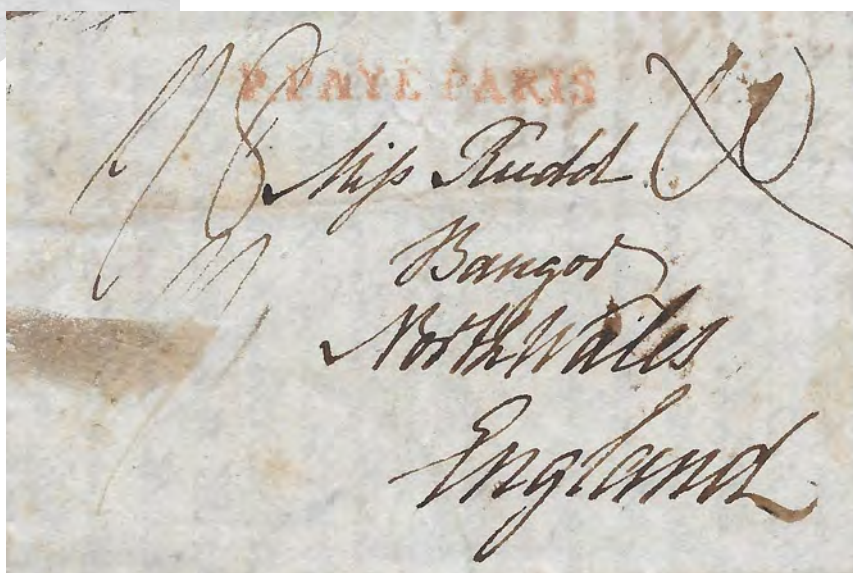 P. PAYÉ PARIS
Miss Rudd
Bangor
North Wales
England